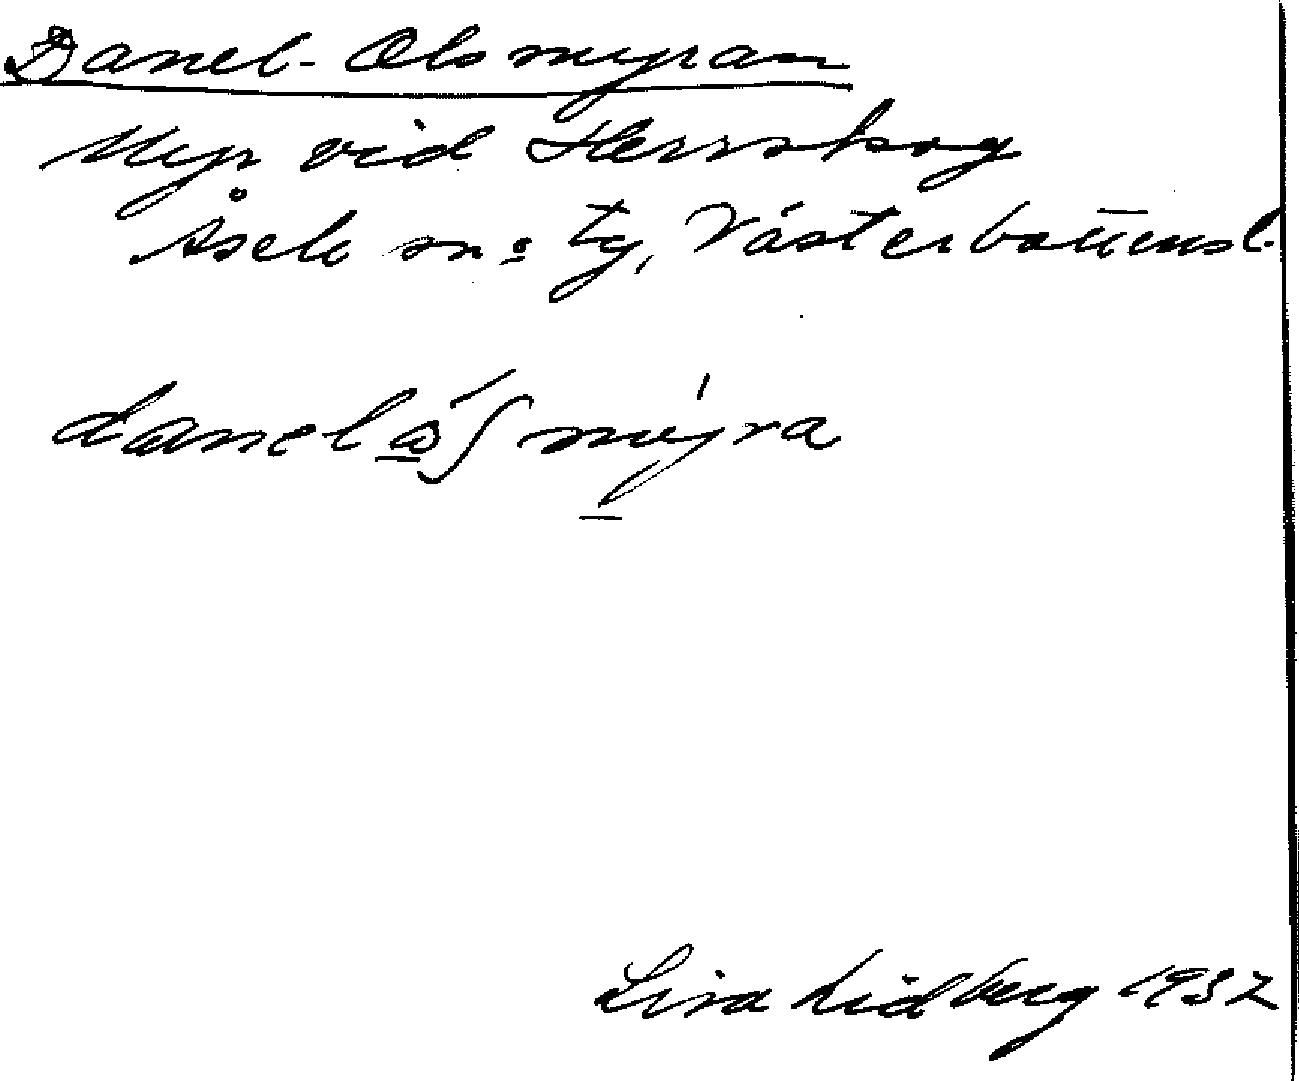 Danel-Olsmyran
Myr vid Herrskog
Åsele sn o tg, Västerbottensl.
danelo̲ʹʃmy̲ʹra
Lisa Lidberg 1932